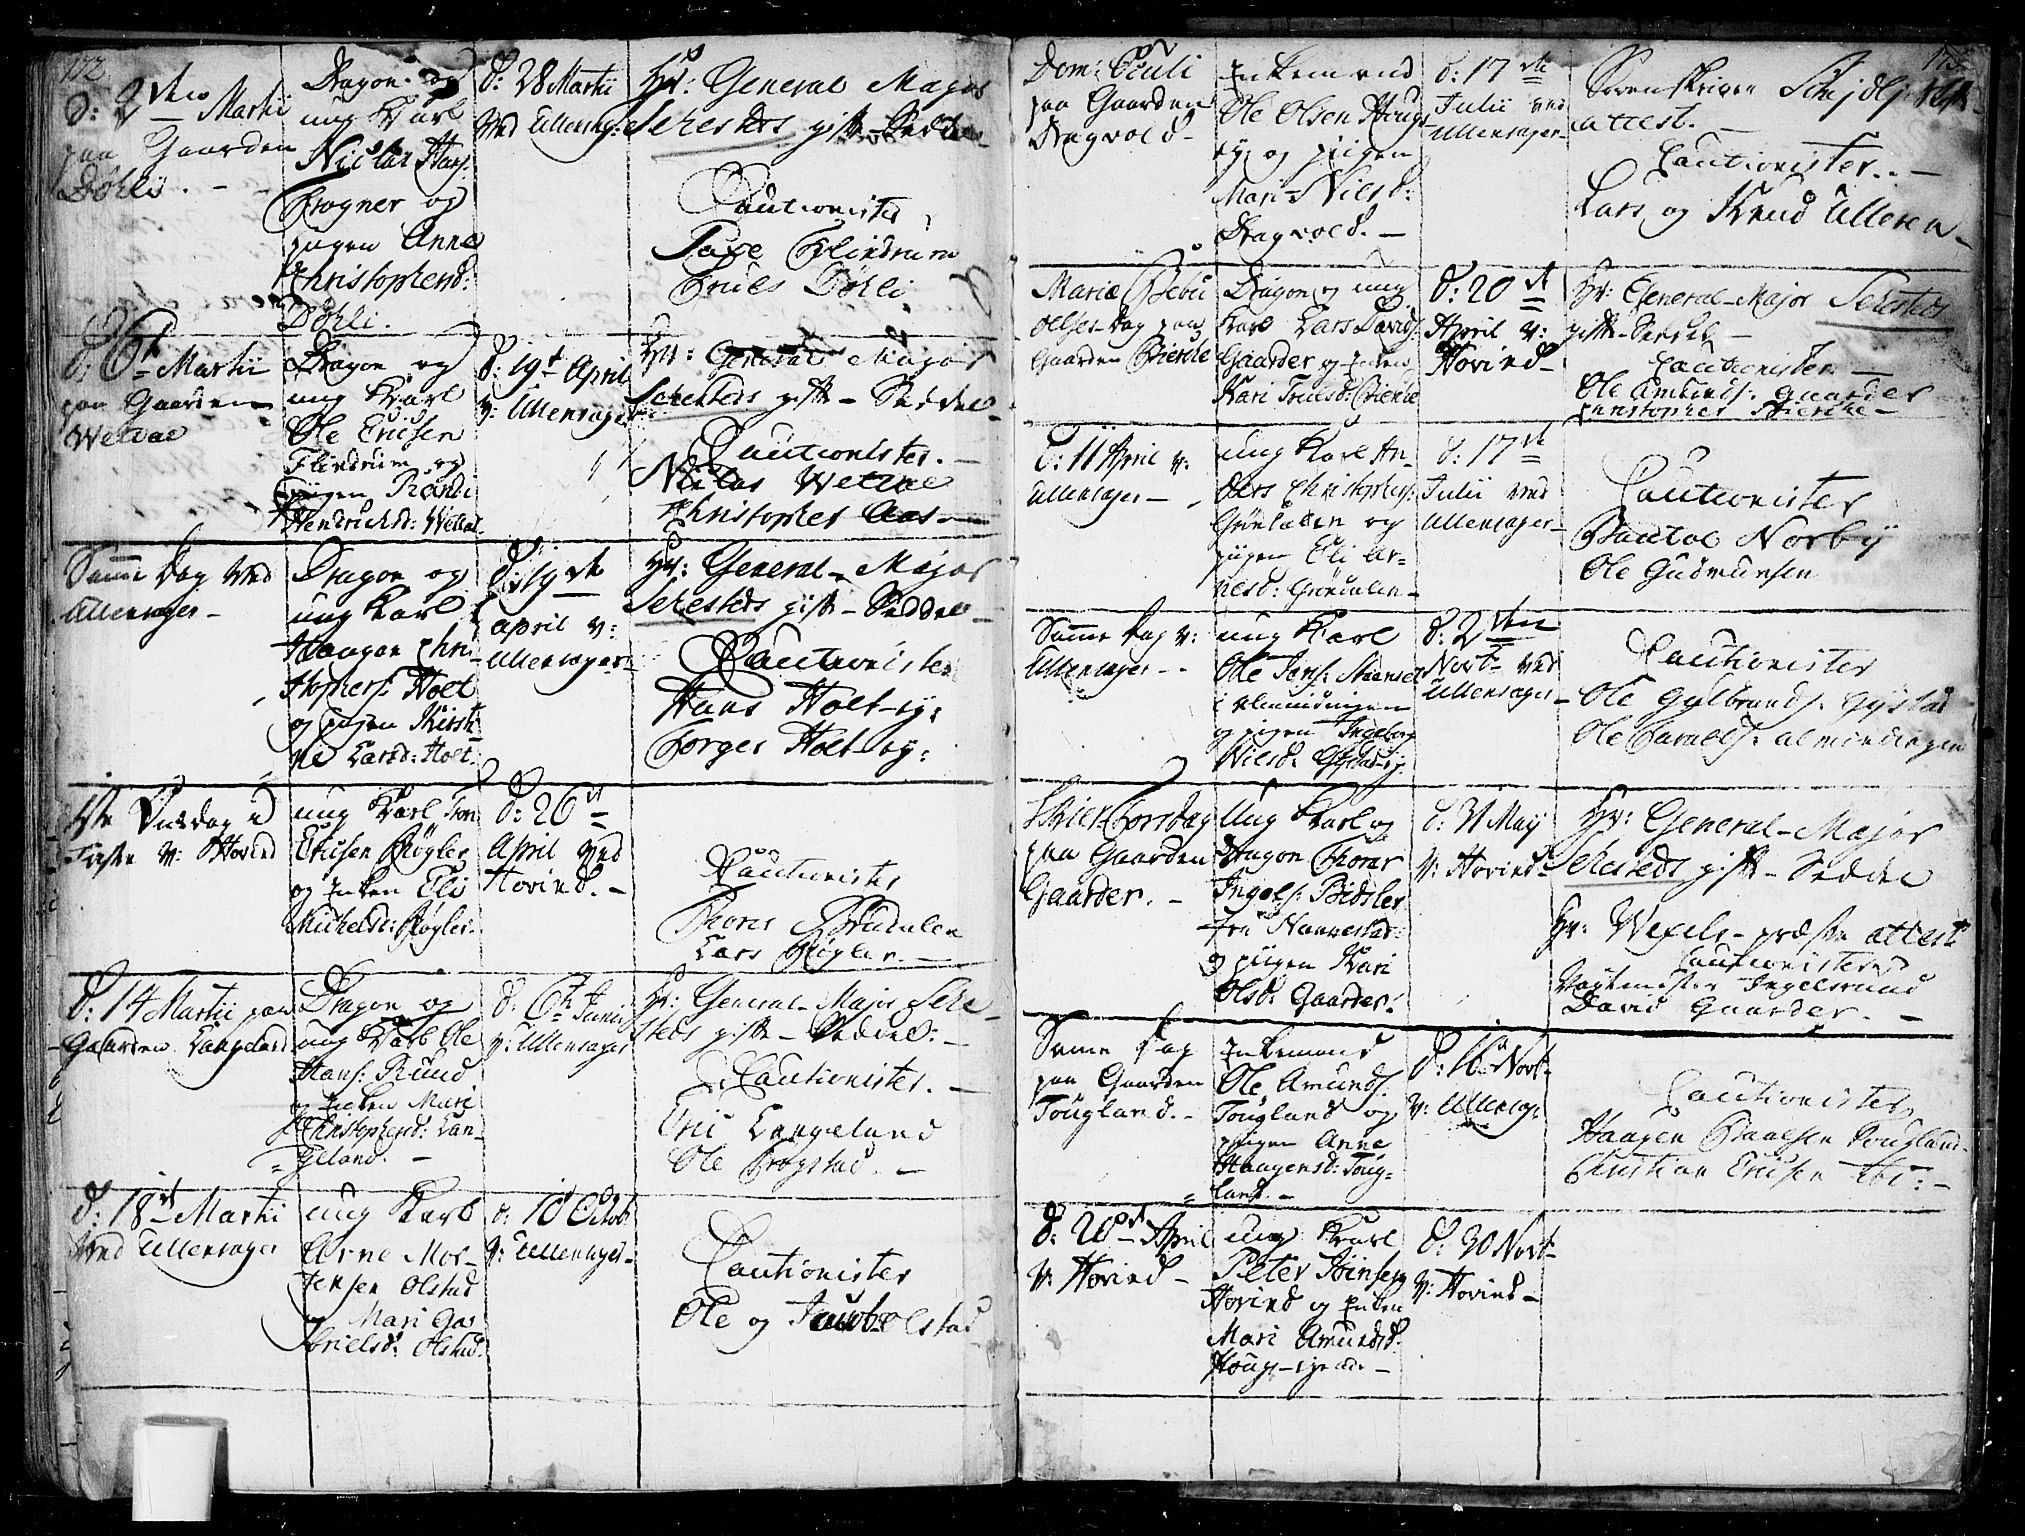 172
d: 2den Martii
paa Gaarden
Døhli. -
Dragon og
ung Karl
Niclas Hans:
Frogner og
pigen Anne
Christophersd:
Døhli.
d: 28 Martii
ved Ullensag:
Hr: General Major
Sehesteds gifte-Seddel
Cautionister
Povel Flindrum
Truls Døhli.
d: 6t Martii
paa Gaarden
Welvae
Dragon og
ung Karl
Ole Ericsen
Flindrum og
pigen Randi
Hendrichsd: Welvae
d: 19t April
v: Ullensager
Hr: General Major
Sehesteds gifte-Seddel
Cautionister. -
Niclas Welvae
Christopher Aas -
Samme Dag ved
Ullensager -
Dragon og
ung Karl
Haagen Chri-
stophers: Holt
og pigen Kirsti-
ne Larsd: Holt.
d: 19de
April v:
Ullensager
Hr: General-Major
Sehesteds gifte-Seddel -
Cautionister
Hans Holt-ey:
Torger Holt-ey:
1ste Tisdag i
Faste v: Hovind
ung Karl
Ericsen Røgler
og Enken Eli
Michelsd: Røgler.
d: 26de
April ved
Hovind. -
Cautionister
Thores
Lars Røgler. -
d: 14 Martii paa
Gaarden Langeland
Dragon og
ung Karl Ole
Hans: Rund
og Enken Mari
Christophersd: Lan-
geland. -
d: 6t Junii
v: Ullensager
Hr: General-Major Sehe-
steds gifte-Seddel: -
Cautionister. -
Eric Langeland
Ole Frogstad. -
d: 18de Martii
ved Ullensager
ung Karl
Arne Mor-
tensen Olstad
og Mari Ga-
brielsd: Olstad.
d: 10 Octobr
v: Ullensager -
Cautionister
Ole og Jacob Olstad
173
Dom: Oculi
paa Gaarden
Dragvold -
Enkemand
Ole Olsen Houg-
ey og pigen
Mari Nilsd:
Dragvold. -
d: 17de
Julii ved
Ullensager -
Sorenskriver
attest. -
Cautionister. -
Lars og Knud Ulleren -
Mariæ Bebu
delses-Dag paa
Gaarden Bierche
Dragon og ung
Karl Lars Davids:
Gaarder og Enken
Kari Trulsd: Bierche
d: 20de
April v:
Hovind -
Hr: General-Major Sehesteds
gifte-Seddel -
Cautionister -
Ole Amunds: Gaarder
Christopher Bierche -
d: 11 April v:
Ullensager -
ung Karl An-
ders Christophers:
Grøndalen og
pigen Eli Ar-
nesd: Grøndalen -
d: 17de
Julii ved
Ullensager -
Cautionister
Paul Norby
Ole Gudmunsen
Samme Dag v:
Ullensager - .
ung Karl
Ole Jens:
i Almindingen
og pigen Ingeborg
Nilsd: Gystad-ey.
d: 2den
Novr ved
Ullensager -
Cautionister
Ole Gulbrands: Gystad
Ole almindingen
Skier-Torsdag
paa Gaarden
Gaarder. -
Ung Karl og
dragon Thorer
Ingels: Bidsler
fra Nannestad:
og pigen Kari
Olsd: Gaarder.
d: 31 May
v: Hovind -
Hr: General-Major
Sehesteds gifte-Seddel
Hr: Wexels - præste attest
Cautionister
Vagtmester Ingelsrud
David Gaarder. -
Samme Dag
paa Gaarden
Tougland. -
Enkemand
Ole Amunds:
Tougland og
pigen Anne
Haagensd: Toug-
land. -
d: 16 Novr
v: Ullensag:
Cautionister
Haagen Paalsen Tougland.
Christian Ericsen ibi: -
d: 20de April
v: Hovind -
ung Karl
Peter Jönsen
Hovind og Enken
Mari Amundsd:
Houg-
d: 30 Novr
v: Hovind -